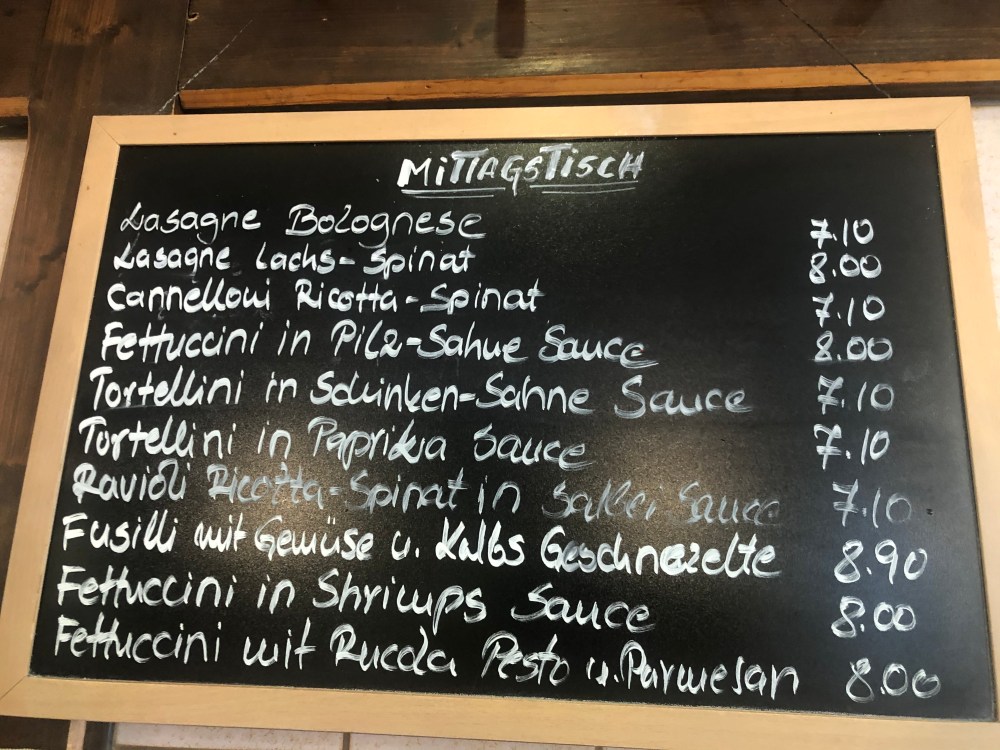 MiTTAGSTISCH
Lasagne Bolognese 7.10
Lasagne Lachs-Spinat 8.00
Cannelloni Ricotta-Spinat 7.10
Fettuccini in Pilz-Sahne Sauce 8.00
Tortellini in Schinken-Sahne Sauce 7.10
Tortellini in Paprika Sauce 7.10
Ravioli Ricotta-Spinat in Salbei Sauce 7.10
Fusilli mit Gemüse u. Kalbs Geschnezelte 8.90
Fettuccini in Shrimps Sauce 8.00
Fettuccini mit Rucola Pesto u. Parmesan 8.00